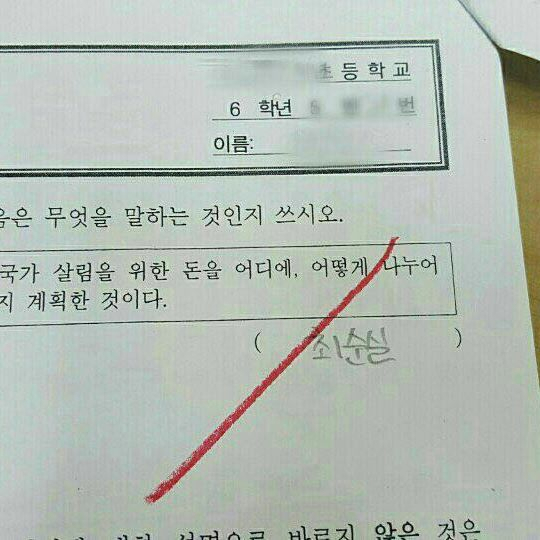 등학교
6 학년 번
이름:
음은 무엇을 말하는 것인지 쓰시오.
국가 살림을 위한 돈을 어디에, 어떻게 나누어
지 계획한 것이다.
( 최순실 )
설명으로 바르지 않은 것은